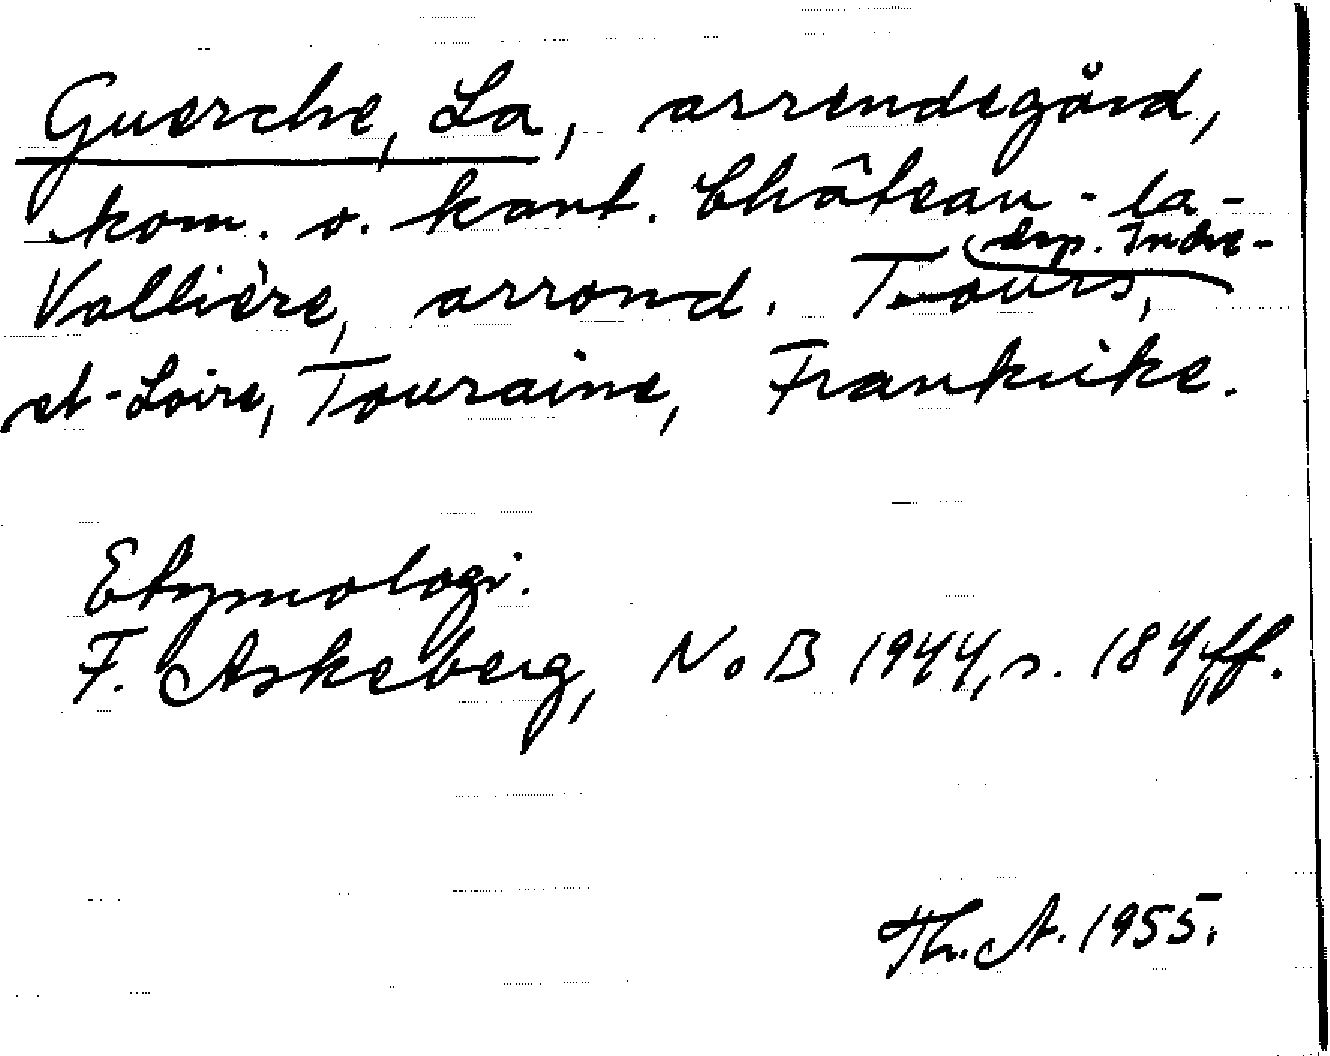 Guerche, La, arrendegård,
kom. o. kant. Château-la-
Vallière, arrond. Tours, dep. Indre-
et-Loire, Touraine, Frankrike.
Etymologi.
F. Askeberg, NoB 1944, s. 184 ff.
Th. A. 1955.